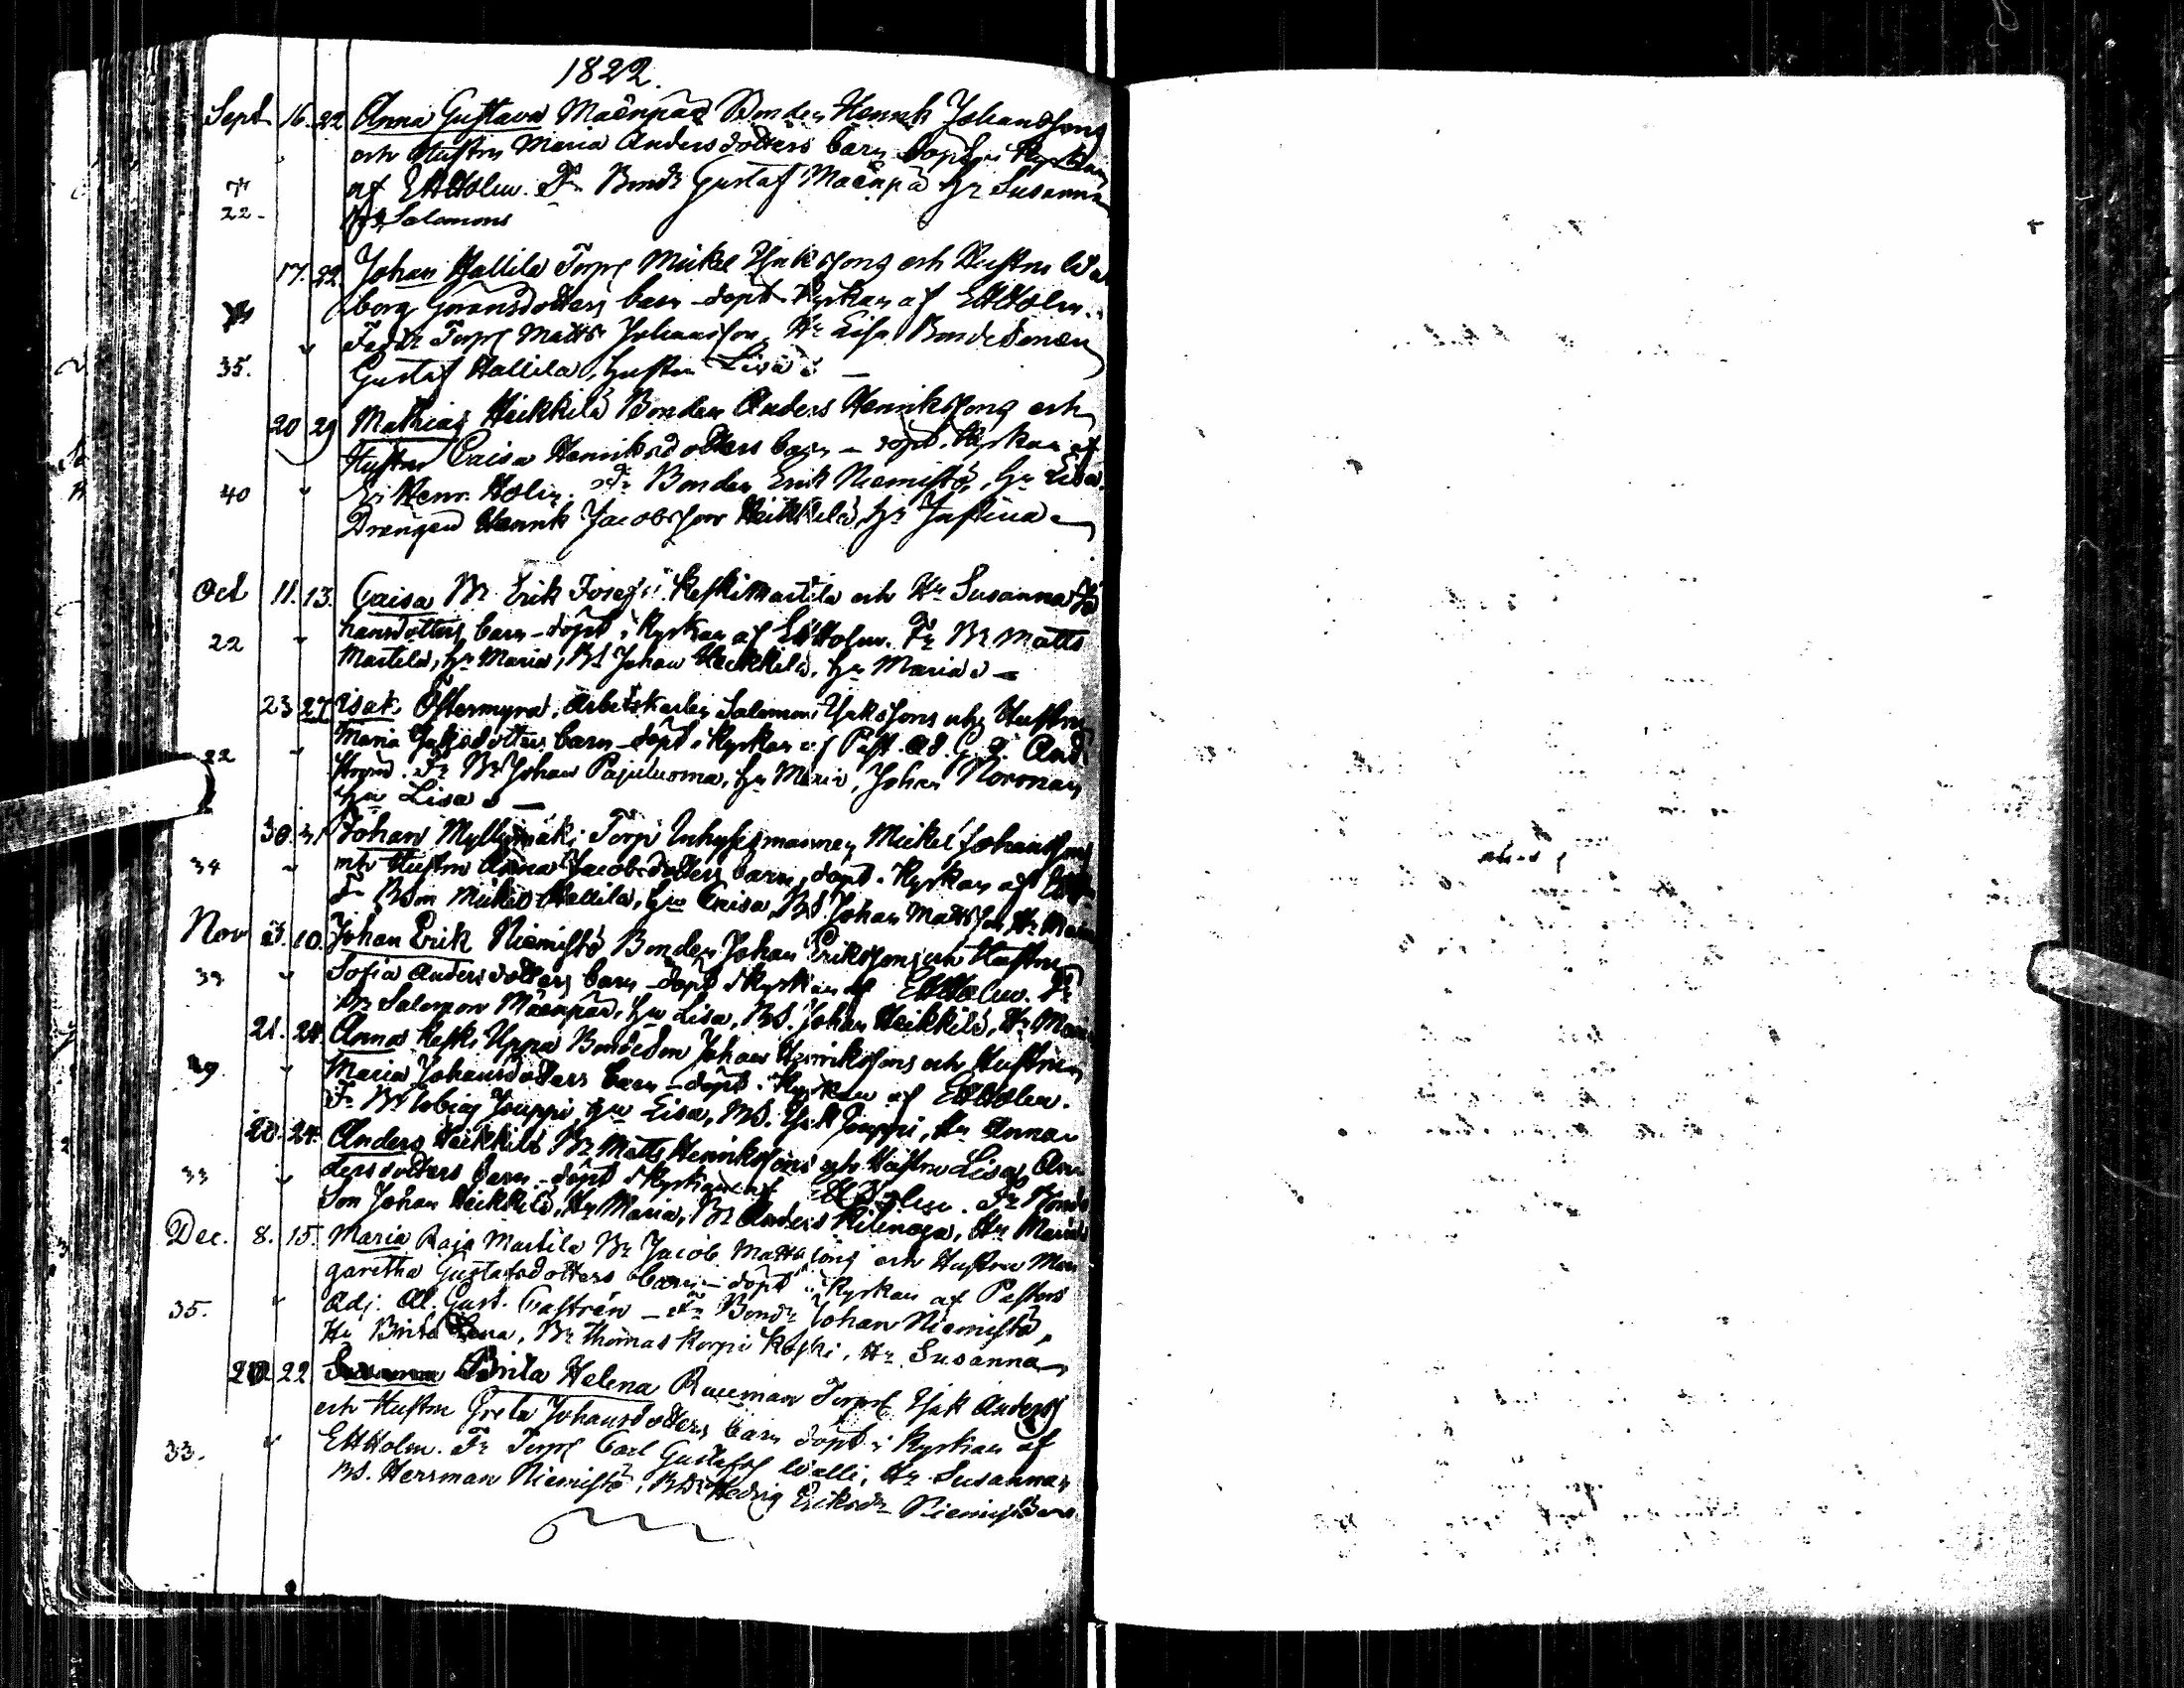 1822.
Sept 16. 22 Anna Gustava Mäenpää Bonden Henrik Johanssons
och Hustru Maria Andersdotters barn döpt i Kyrkan
af EHHolm. Fr Bondn Gustaf Mäenpä hu Susanna
22. Salomons
17. 22. Johan Hallila Torp Mickel Isaksons och Hustru Wal
borg Göransdotters barn döpt Kyrkan af EHHolm.
Torp Matts Johansson, Hu Lisa Bondesonen
35. Gustaf Hallila, hustru Lisa
20 29 Mathias Heikkilä Bonden Anders Henrikssons och
Hustru Caisa Henriksdotters barn – döpt. Kyrkan af
40 Er. Henr. Holm. Fr Bonden Erik Niemistö, hu Lisa.
Drengen Henrik Jacobsson Heikkilä, hu Justina
Oct 11. 13. Caisa Br Erik Josefs. Keski Martila och Hu Susanna Jo
22 hansdotters barn – döpt i Kyrkan af EHHolm. Fr Br Matts
Martila, hu Maria, BS Johan Heikkilä, hu Maria –
23 27 Isak Östermyra, Arbetskarlen Salomon Isakssons och Hustru
Maria Jakobsdotters barn – döpt i Kyrkan af Past. Ad. And
22 Fr Br Johan Pajuluoma, hu Maria, Johan Noronan
hu Lisa –
30. 31 Johan Myllymäki Torp Inhysesmannen Mickel Johanssons
34 och Hustru Anna Jacobsdotters barn, döpt i Kyrkan af
Fr Bon Mickel Hallila, hu Caisa, BS. Johan Mattsson, Hu Maria
Nov 3. 10. Johan Erik Niemistö Bonden Johan Erikssons och Hustru
39 Sofia Andersdotters barn – döpt i Kyrkan af EHHolm. Fr
Br Salomon Mäenpää, hu Lisa, BS. Johan Heikkilä, Hu Maria
21. 24. Anna Keski Uppa Bondeson Johan Henrikssons och Hustrun
Maria Johansdotters barn – döpt i Kyrkan af EHHolm.
Fr Br Tobias Jouppi, hu Lisa, BS. Isak Jouppi, Hu Anna
20. 24. Anders Heikkilä Br Matts Henrikssons och Hustru Lisa An
33 dersdotters barn – döpt i Kyrkan af EHHolm. Fr Bonde
Son Johan Heikkilä, Hu Maria, Br Anders Kitinoja, Hu Maria
Dec. 8. 15. Maria Raja Martila Br Jacob Mattssons och Hustru Mar
garetha Gustafsdotters barn – döpt i Kyrkan af Pastors
35. Adj. Al. Gust. Castrén – Fr Bondn Johan Niemistö,
Hu Brita Lena, Br Thomas Korpi Koski, Hu Susanna
22 Brita Helena Rauman Torp Isak Anders
och Hustru Greta Johansdotters barn döpt i Kyrkan af
33. EHHolm. Fr Torp Carl Gustafss Walli, Hu Susanna,
BS. Herrman Niemistö, BDr Hedvig Eriksdr Niemistö